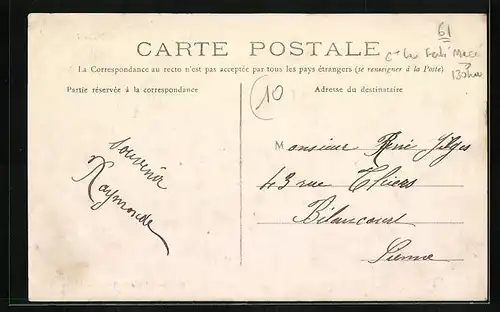 61
CARTE POSTALE
La Correspondance au recto n'est pas acceptée par tous les pays étrangers (se renseigner à la Poste)
Partie réservée à la correspondance
Adresse du destinataire
10
Souvenir
Raymonde
Monsieur René
43 rue Thiers
Bilancourt